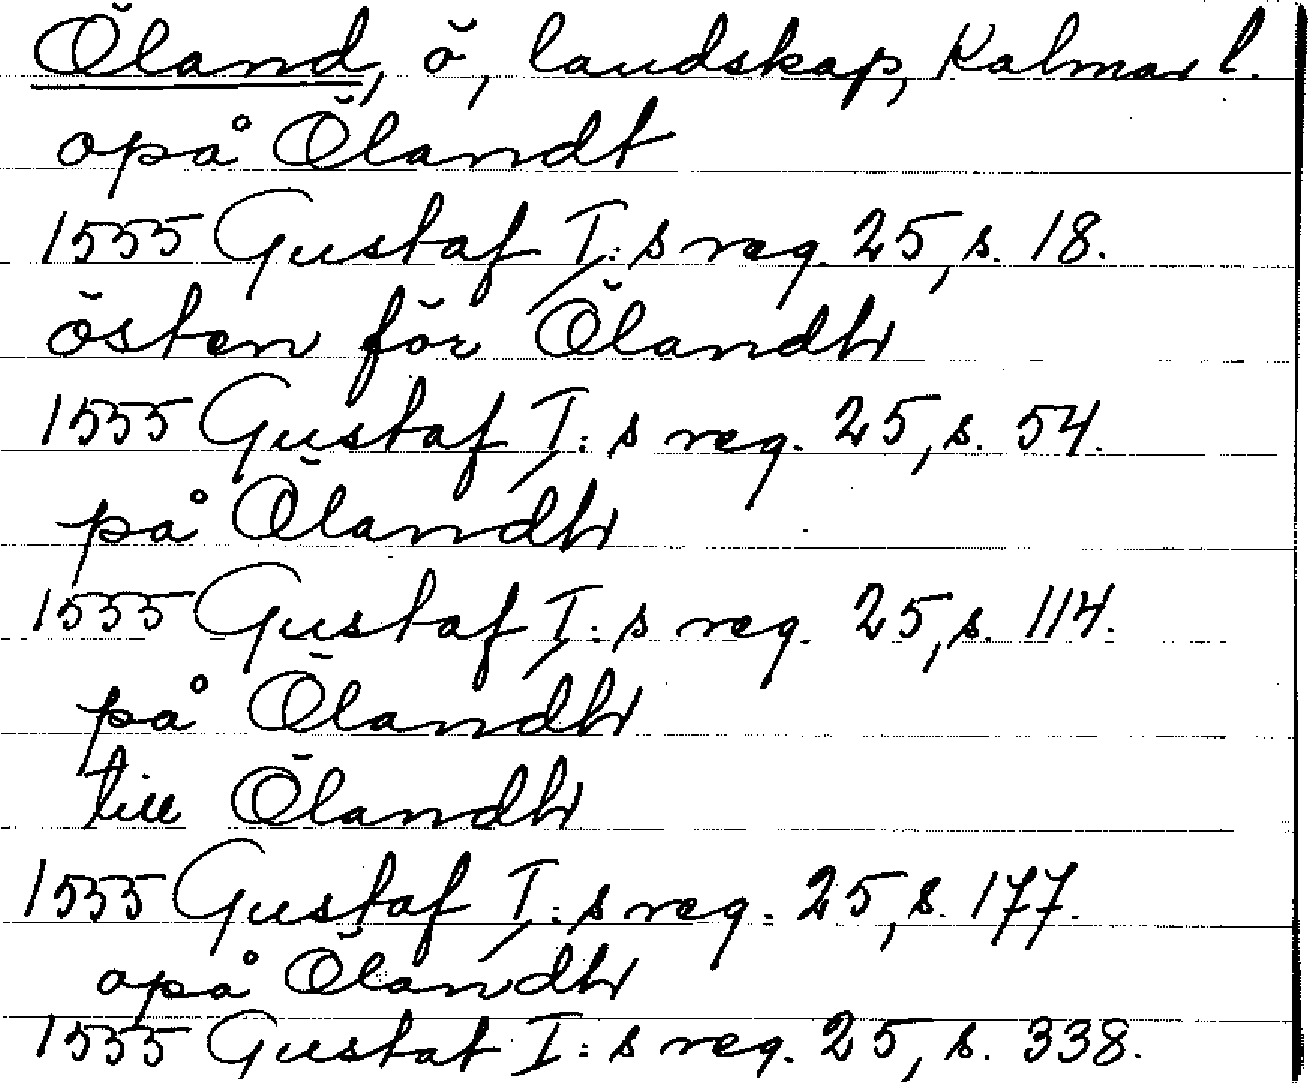 Öland, ö, landskap, Kalmar l.
opå Ölandt
1555 Gustaf I:s reg. 25, s. 18.
östen för Ölandh
1555 Gustaf I:s reg. 25, s. 54.
på Ölandh
1555 Gustaf I:s reg. 25, s. 114.
på Ölandh
till Ölandh
1555 Gustaf I:s reg. 25, s. 177.
opå Ölandh
1555 Gustaf I:s reg. 25, s. 338.